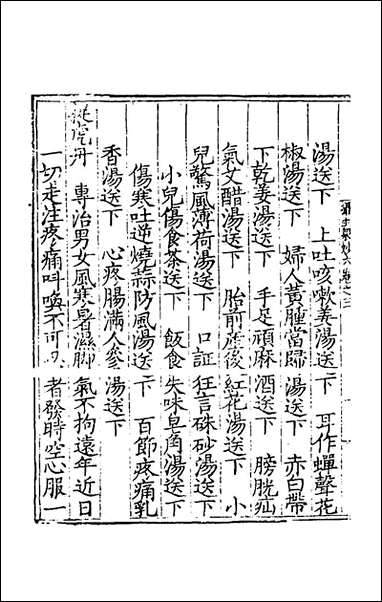 湯送下　上吐咳嗽姜湯送下　耳作蟬聲花
椒湯送下　婦人黃腫當歸湯送下　赤白帶
下乾姜湯送下　手足頑麻酒送下　膀胱疝
氣艾醋湯送下　胎前產後紅花湯送下　小
兒驚風薄荷湯送下　口証狂言硃砂湯送下
小兒傷食茶送下　飯食失味皂角湯送下
傷寒吐逆燒蒜防風湯送下　百節疼痛乳
香湯送下　心疼腸滿人參湯送下
虎丹　專治男女風寒暑濕脚氣不拘遠年近日
一切走注疼痛叫喚不可者發時空心服一